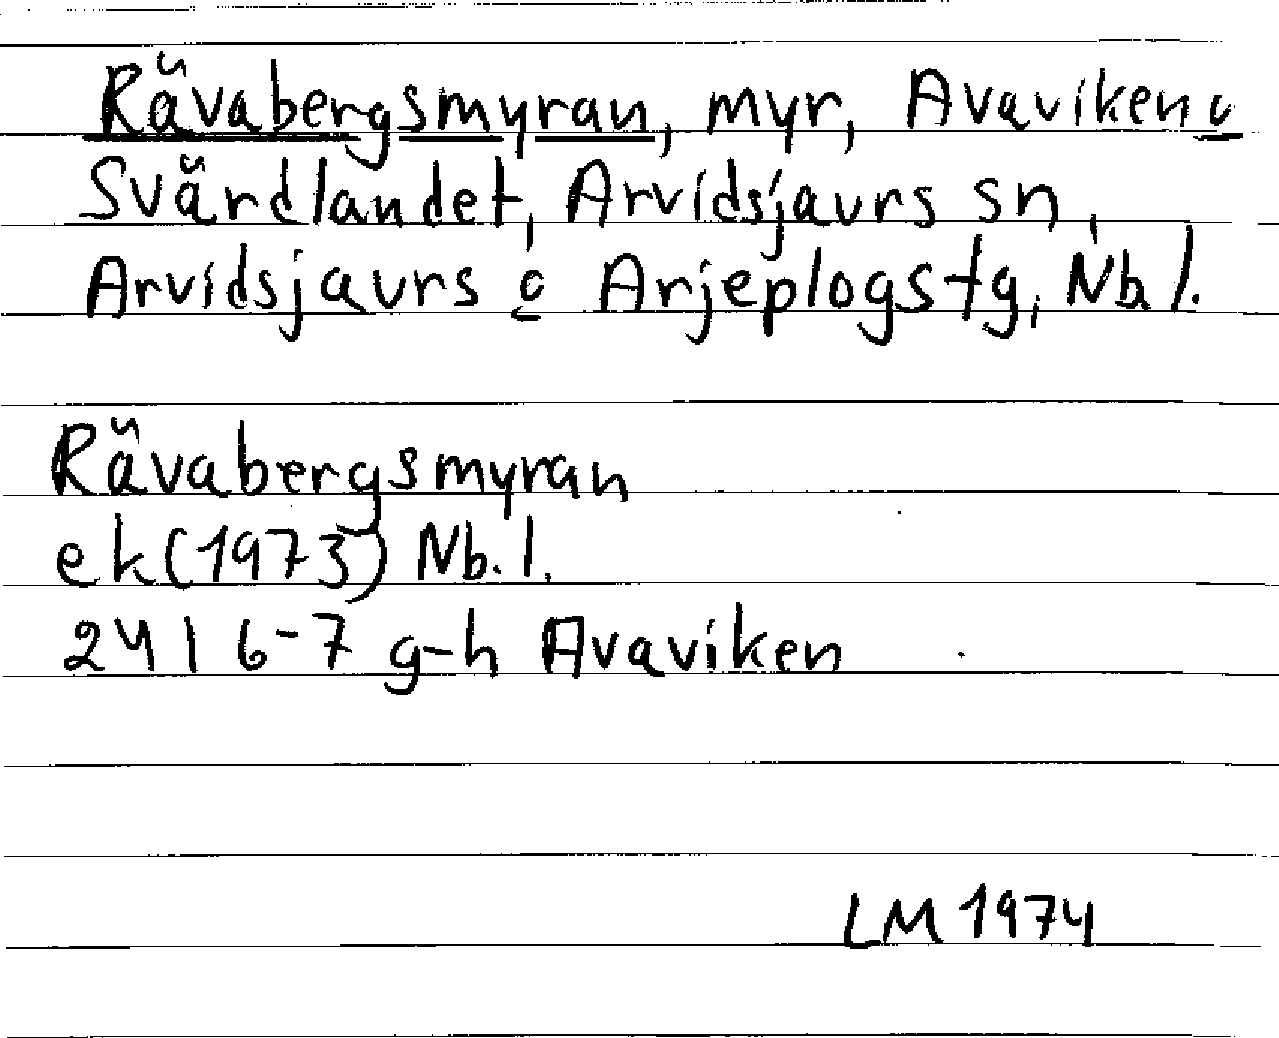 Rävabergsmyran, myr, Avaviken o
Svärdlandet, Arvidsjaurs sn,
Arvidsjaurs o Arjeplogs tg, Nb l.
Rävabergsmyran
ek (1973) Nb. l.
24 I 6-7 g-h Avaviken
LM 1974